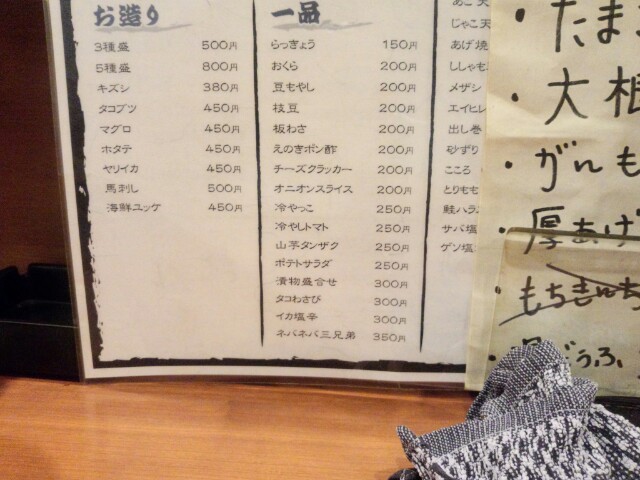 お造り
3種盛 500円
5種盛 800円
キズシ 380円
タコブツ 450円
マグロ 450円
ホタテ 450円
ヤリイカ 450円
馬刺し 500円
海鮮ユッケ 450円
一品
らっきょう 150円
おくら 200円
豆もやし 200円
枝豆 200円
板わさ 200円
えのきポン酢 200円
チーズクラッカー 200円
オニオンスライス 200円
冷やっこ 250円
冷やしトマト 250円
山芋タンザク 250円
ポテトサラダ 250円
漬物盛合せ 300円
タコわさび 300円
イカ塩辛 300円
ネバネバ三兄弟 350円
じゃこ天
あげ焼
ししゃも
メザシ
エイヒレ
出し巻
砂ずり
こころ
とりもも
鮭ハラス
サバ塩
ゲソ塩
・たまご
・大根
・がんも
・厚あげ
・もちきんち